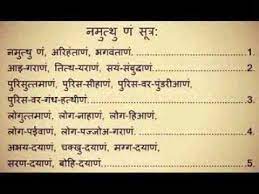 नमुत्थु णं सूत्र:
नमुत्थु णं, अरिहंताणं, भगवंताणं. 1
आइ-गराणं, तित्थ-यराणं, सयं-संबुद्धाणं. 2
पुरिसुत्तमाणं, पुरिस-सीहाणं, पुरिस-वर-पुंडरीआणं.
पुरिस-वर-गंध-हत्थीणं. 3
लोगुत्तमाणं, लोग-नाहाणं, लोग-हिआणं.
लोग-पईवाणं, लोग-पज्जोअ-गराणं. 4
अभय-दयाणं, चक्खु-दयाणं, मग्ग-दयाणं.
सरण-दयाणं, बोहि-दयाणं. 5